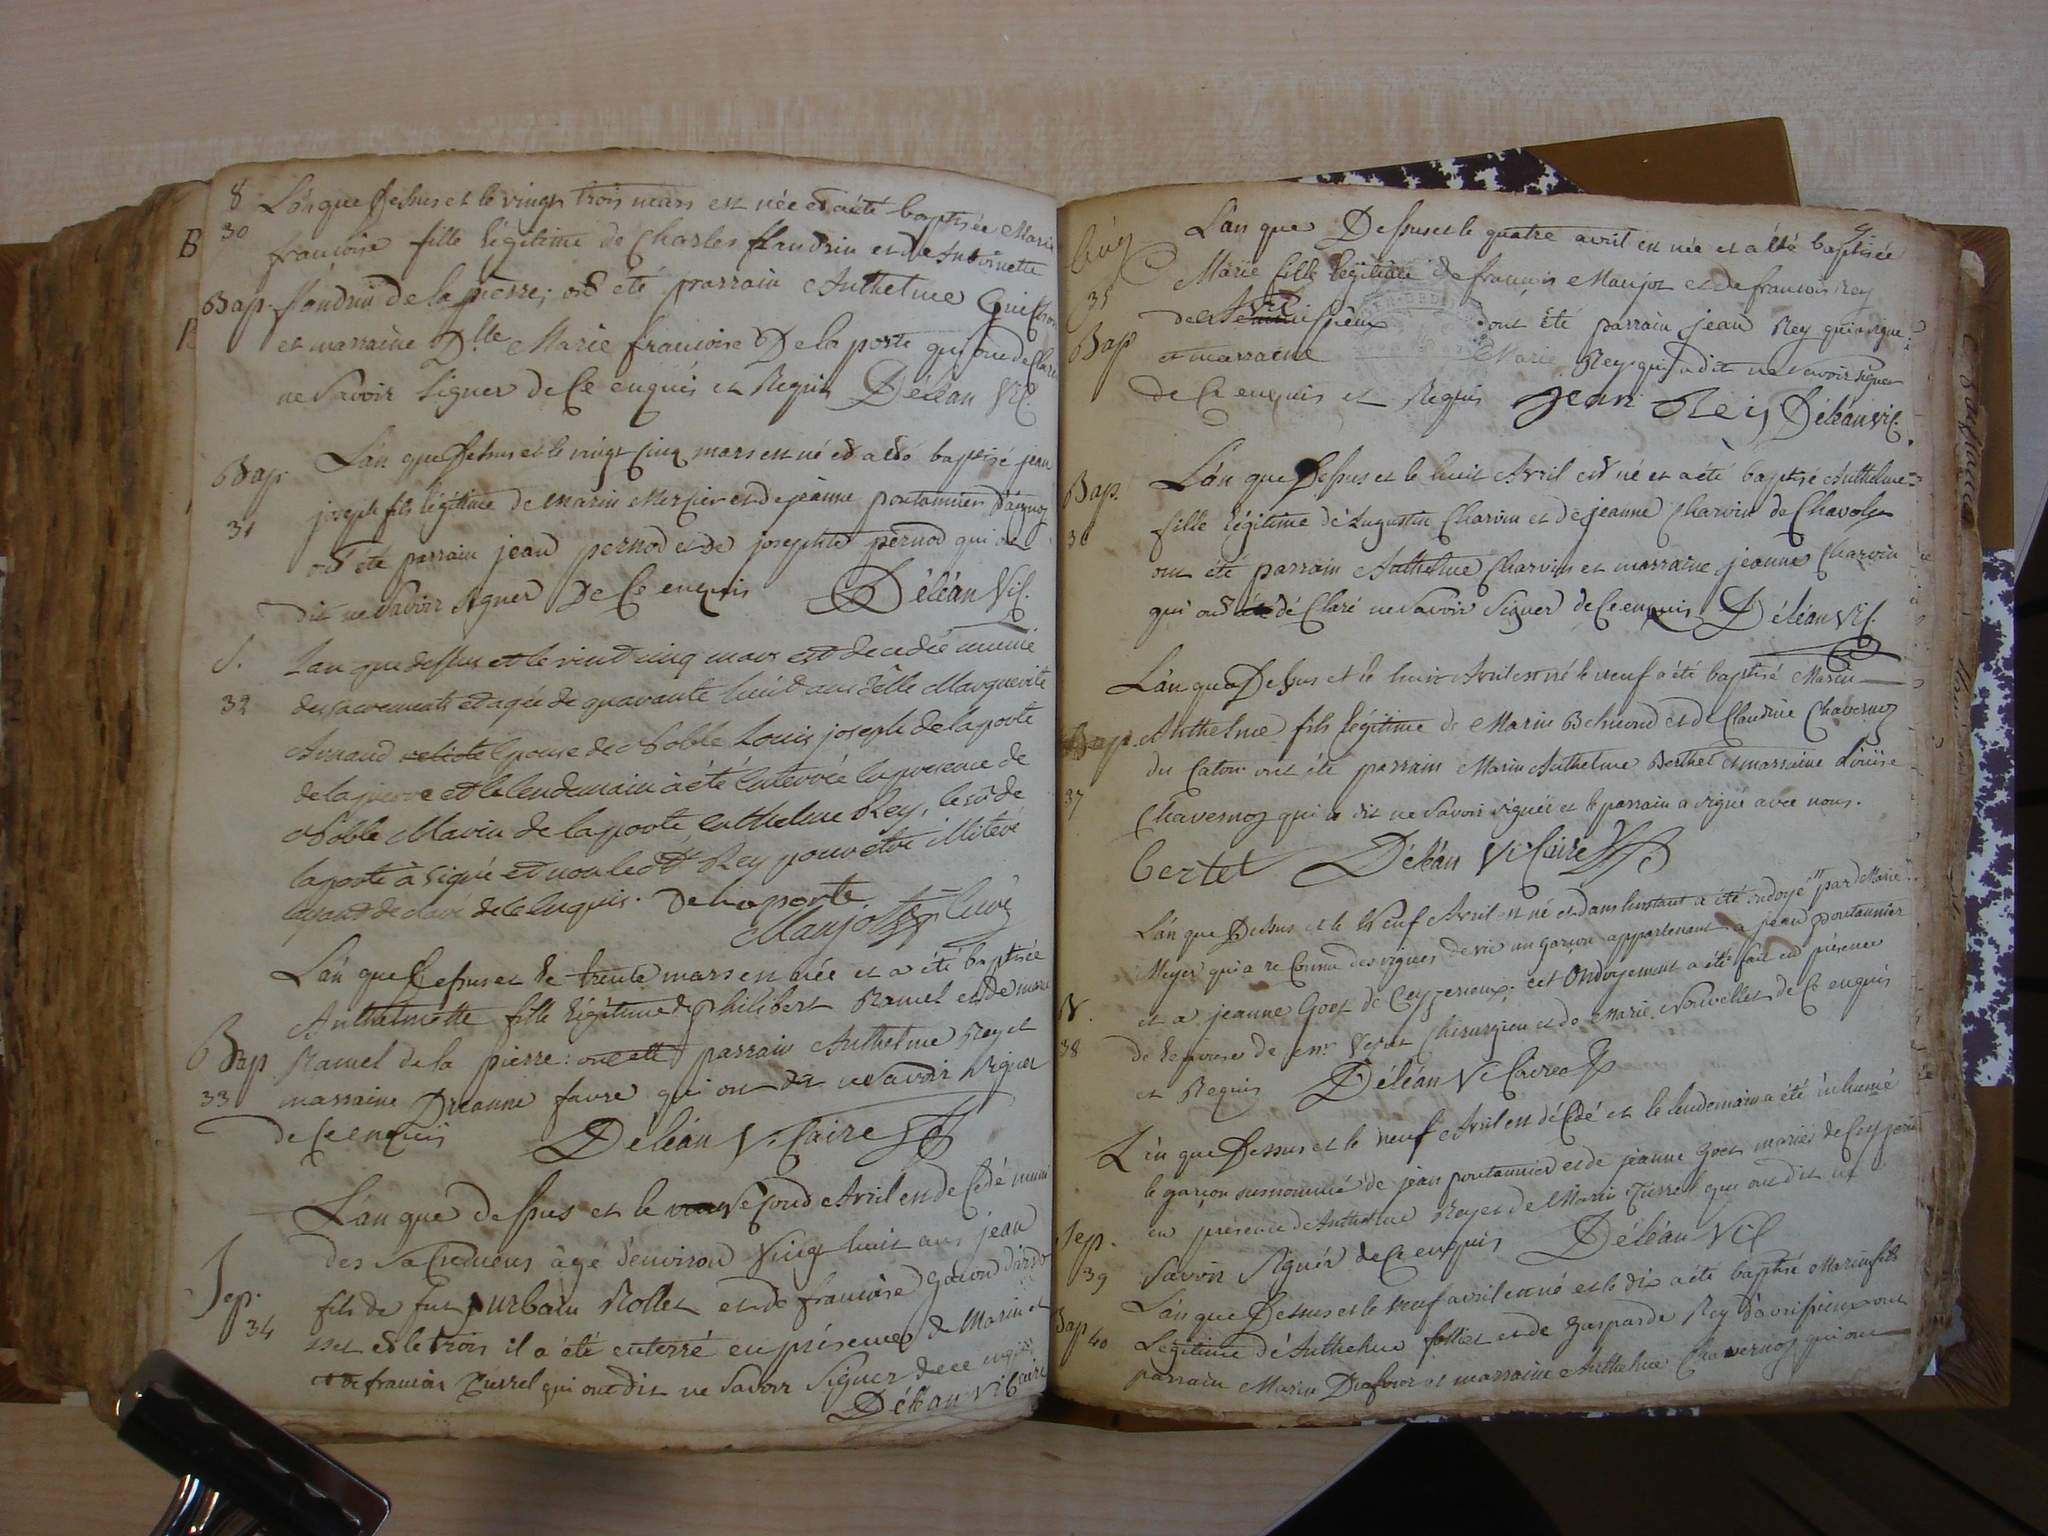 8
30
B
L'an que Dessus et le vingt trois mars est née et a été baptisée Marie
francoise fille légitime de Charles flandrin et de Antoinette
Bap. flandrin de la pierre; ont été parrain Anthelme
et marraine Dlle Marie francoise De la porte qui ont declaré
ne savoir signer de Ce enquis et Requis Déléan Vic.
Bap.
31
L'an que Dessus et le vingt cinq mars est né et a été baptisé jean
joseph fils légitime de marin Mercier et de jeanne pontannier
ont été parrain jean pernod et de josephte pernod qui ont
dit ne savoir signer De Ce enquis Déléan Vic.
S.
32
L'an que dessus et le vint cinq mars est decedée munie
des sacrements et agée de quarante huit ans delle Marguerite
Arnaud epouse de Noble Louis joseph de la porte
de la pierre et le lendemain a été enterrée en presence de
Noble Marin de la porte, enthelme Rey, le sr de
laporte à signé et non led. Rey pour etre illiteré
layant declaré de ce enquis. De la porte
Manjot curé
L'an que Dessus et le trente mars est née et a été baptisée
Anthelmette fille légitime de philibert Ramel et de marie
Bap
33
Ramel de la pierre: ont été parrain Anthelme Rey et
marraine favre qui ont dit ne savoir signer
de Ce enquis Déléan Vicaire
L'an que dessus et le second Avril est decedé muni
des sacremens âgé d'environ vingt huit ans jean
Sep.
34
fils de fut urbain Rollet et de francoise
et le trois il a été enterré en présence de Marin et
de francois Turrel qui ont dit ne savoir signer de ce enquis
Déléan Vicaire
9
L'an que Dessus et le quatre avril est née et a été baptisée
35
Bap
Marie fille légitime de francois Manjot et de francoise Rey
ont été parrain jean Rey qui a signé
et marraine Marie Rey qui a dit ne savoir signer
de Ce enquis et Requis jean Reij Déléan Vic.
Bap.
36
L'an que Dessus et le huit Avril est né et a été baptisé Anthelme
fille légitime d'Augustin Charvin et de jeanne Charvin de Chavoley
ont été parrain Anthelme Charvin et marraine jeanne Charvin
qui ont déclaré ne savoir signer de Ce enquis Déléan Vic.
L'an que Dessus et le huit Avril est né le neuf a été baptisé Marin
Bap. Anthelme fils légitime de Marin Belmond et de Claudine Chavernoz
37
du Caton ont été parrain Marin Anthelme Berthet et marraine Louise
Chavernoz qui a dit ne savoir signer et le parrain a signé avec nous.
bertet Déléan Vicaire
L'an que Dessus et le Neuf Avril est né et dans linstant a été ondoyé par Marie
Meyer qui a reconnu des signes de vie un garçon appartenant a jean pontannier
N.
38
et a jeanne Goet de Ceyzerieux; cet Ondoyement a été fait en présence
de lepouse de mr chirurgien et de Marie de Ce enquis
et Requis Déléan Vicaire
L'an que Dessus et le neuf Avril est décédé et le lendemain a été inhumé
le garçon susnommé de jean pontannier et de jeanne Goet mariés de
Sep.
39
en présence d'Anthelme Rey et de Marin Turrel qui ont dit ne
savoir signer de Ce enquis Déléan Vic
Bap 40
L'an que Dessus et le neuf avril est né et le dix a été baptisé Marin fils
Légitime d'Anthelme folliet et de gasparde Rey d'avrissieux ont
parrain Marin Dufour et marraine Anthelme Chavernoz qui ont